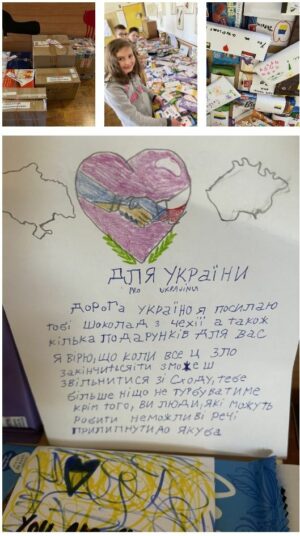 ДЛЯ УКРАЇНИ
PRO UKRAJINU
ДОРОГА УКРАЇНО Я ПОСИЛАЮ
ТОБІ ШОКОЛАД З ЧЕХІЇ А ТАКОЖ
КІЛЬКА ПОДАРУНКІВ ДЛЯ ВАС
Я ВІРЮ, ЩО КОЛИ ВСЕ Ц ЗЛО
ЗАКІНЧИТЬСЯІТИ ЗМОЖЕШ
ЗВІЛЬНИТИСЯ ЗІ СХОДУ, ТЕБЕ
БІЛЬШЕ НІЩО НЕ ТУРБУВАТИМЕ
КРІМ ТОГО, ВИ ЛЮДИ, ЯКІ МОЖУТЬ
РОБИТИ НЕМОЖЛИВІ РЕЧІ
ПРИЛИПНУТИ ДО ЯКУБА
You